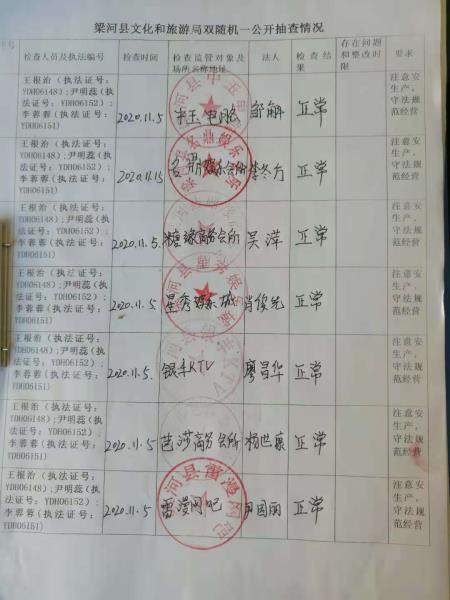 梁河县文化和旅游局双随机一公开抽查情况
检查人员及执法编号 检查时间 检查监管对象及场所名称地址 法人 检查结果 存在问题和整改时限 要求
王根治(执法证号:
YDH06148);尹明蕊(执
法证号:YDH06152);
李蓉蓉(执法证号:
YDH06151)
2020.11.5 中玉电网 正常
注意安
生产,
守法规
范经营
王根治(执法证号:
YDH06148);尹明蕊(执
法证号:YDH06152);
李蓉蓉(执法证号:
YDH06151)
2020.11.5 名鼎娱乐会所 李冬方 正常
注意安
生产,
守法规
范经营
王根治(执法证号:
YDH06148);尹明蕊(执
法证号:YDH06152);
李蓉蓉(执法证号:
YDH06151)
2020.11.5. 糖缘商务会所 吴萍 正常
注意安
生产,
守法规
范经营
王根治(执法证号:
YDH06148);尹明蕊(执
法证号:YDH06152);
李蓉蓉(执法证号:
YDH06151)
2020.11.5. 星秀娱乐城 肖俊光 正常
注意安
生产,
守法规
范经营
王根治(执法证号:
YDH06148);尹明蕊(执
法证号:YDH06152);
李蓉蓉(执法证号:
YDH06151)
2020.11.5. 银丰KTV 廖昌华 正常
注意安
生产,
守法规
范经营
王根治(执法证号:
YDH06148);尹明蕊(执
法证号:YDH06152);
李蓉蓉(执法证号:
YDH06151)
2020.11.5 芭莎商务会所 杨世康 正常
注意安
生产,
守法规
范经营
王根治(执法证号:
YDH06148);尹明蕊(执
法证号:YDH06152);
李蓉蓉(执法证号:
YDH06151)
2020.11.5 雷漫网吧 尹国丽 正常
注意安
生产,
守法规
范经营